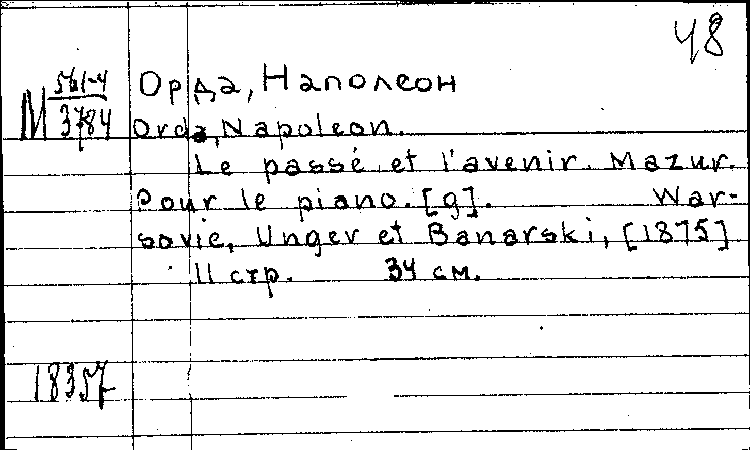 48
М 561-4
3784
Орда, Наполеон
Orda, Napoleon.
Le passé et l'avenir. Mazur.
Pour le piano. [g]. War-
sovie, Unger et Banarski, [1875]
11 стр. 34 см.
18357